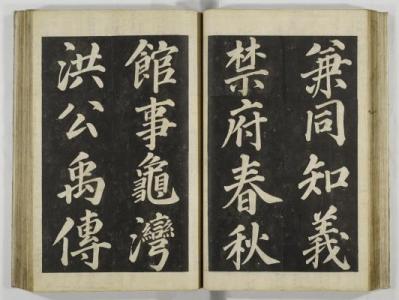 兼同知義
禁府春秋
館事龜灣
洪公禹傳